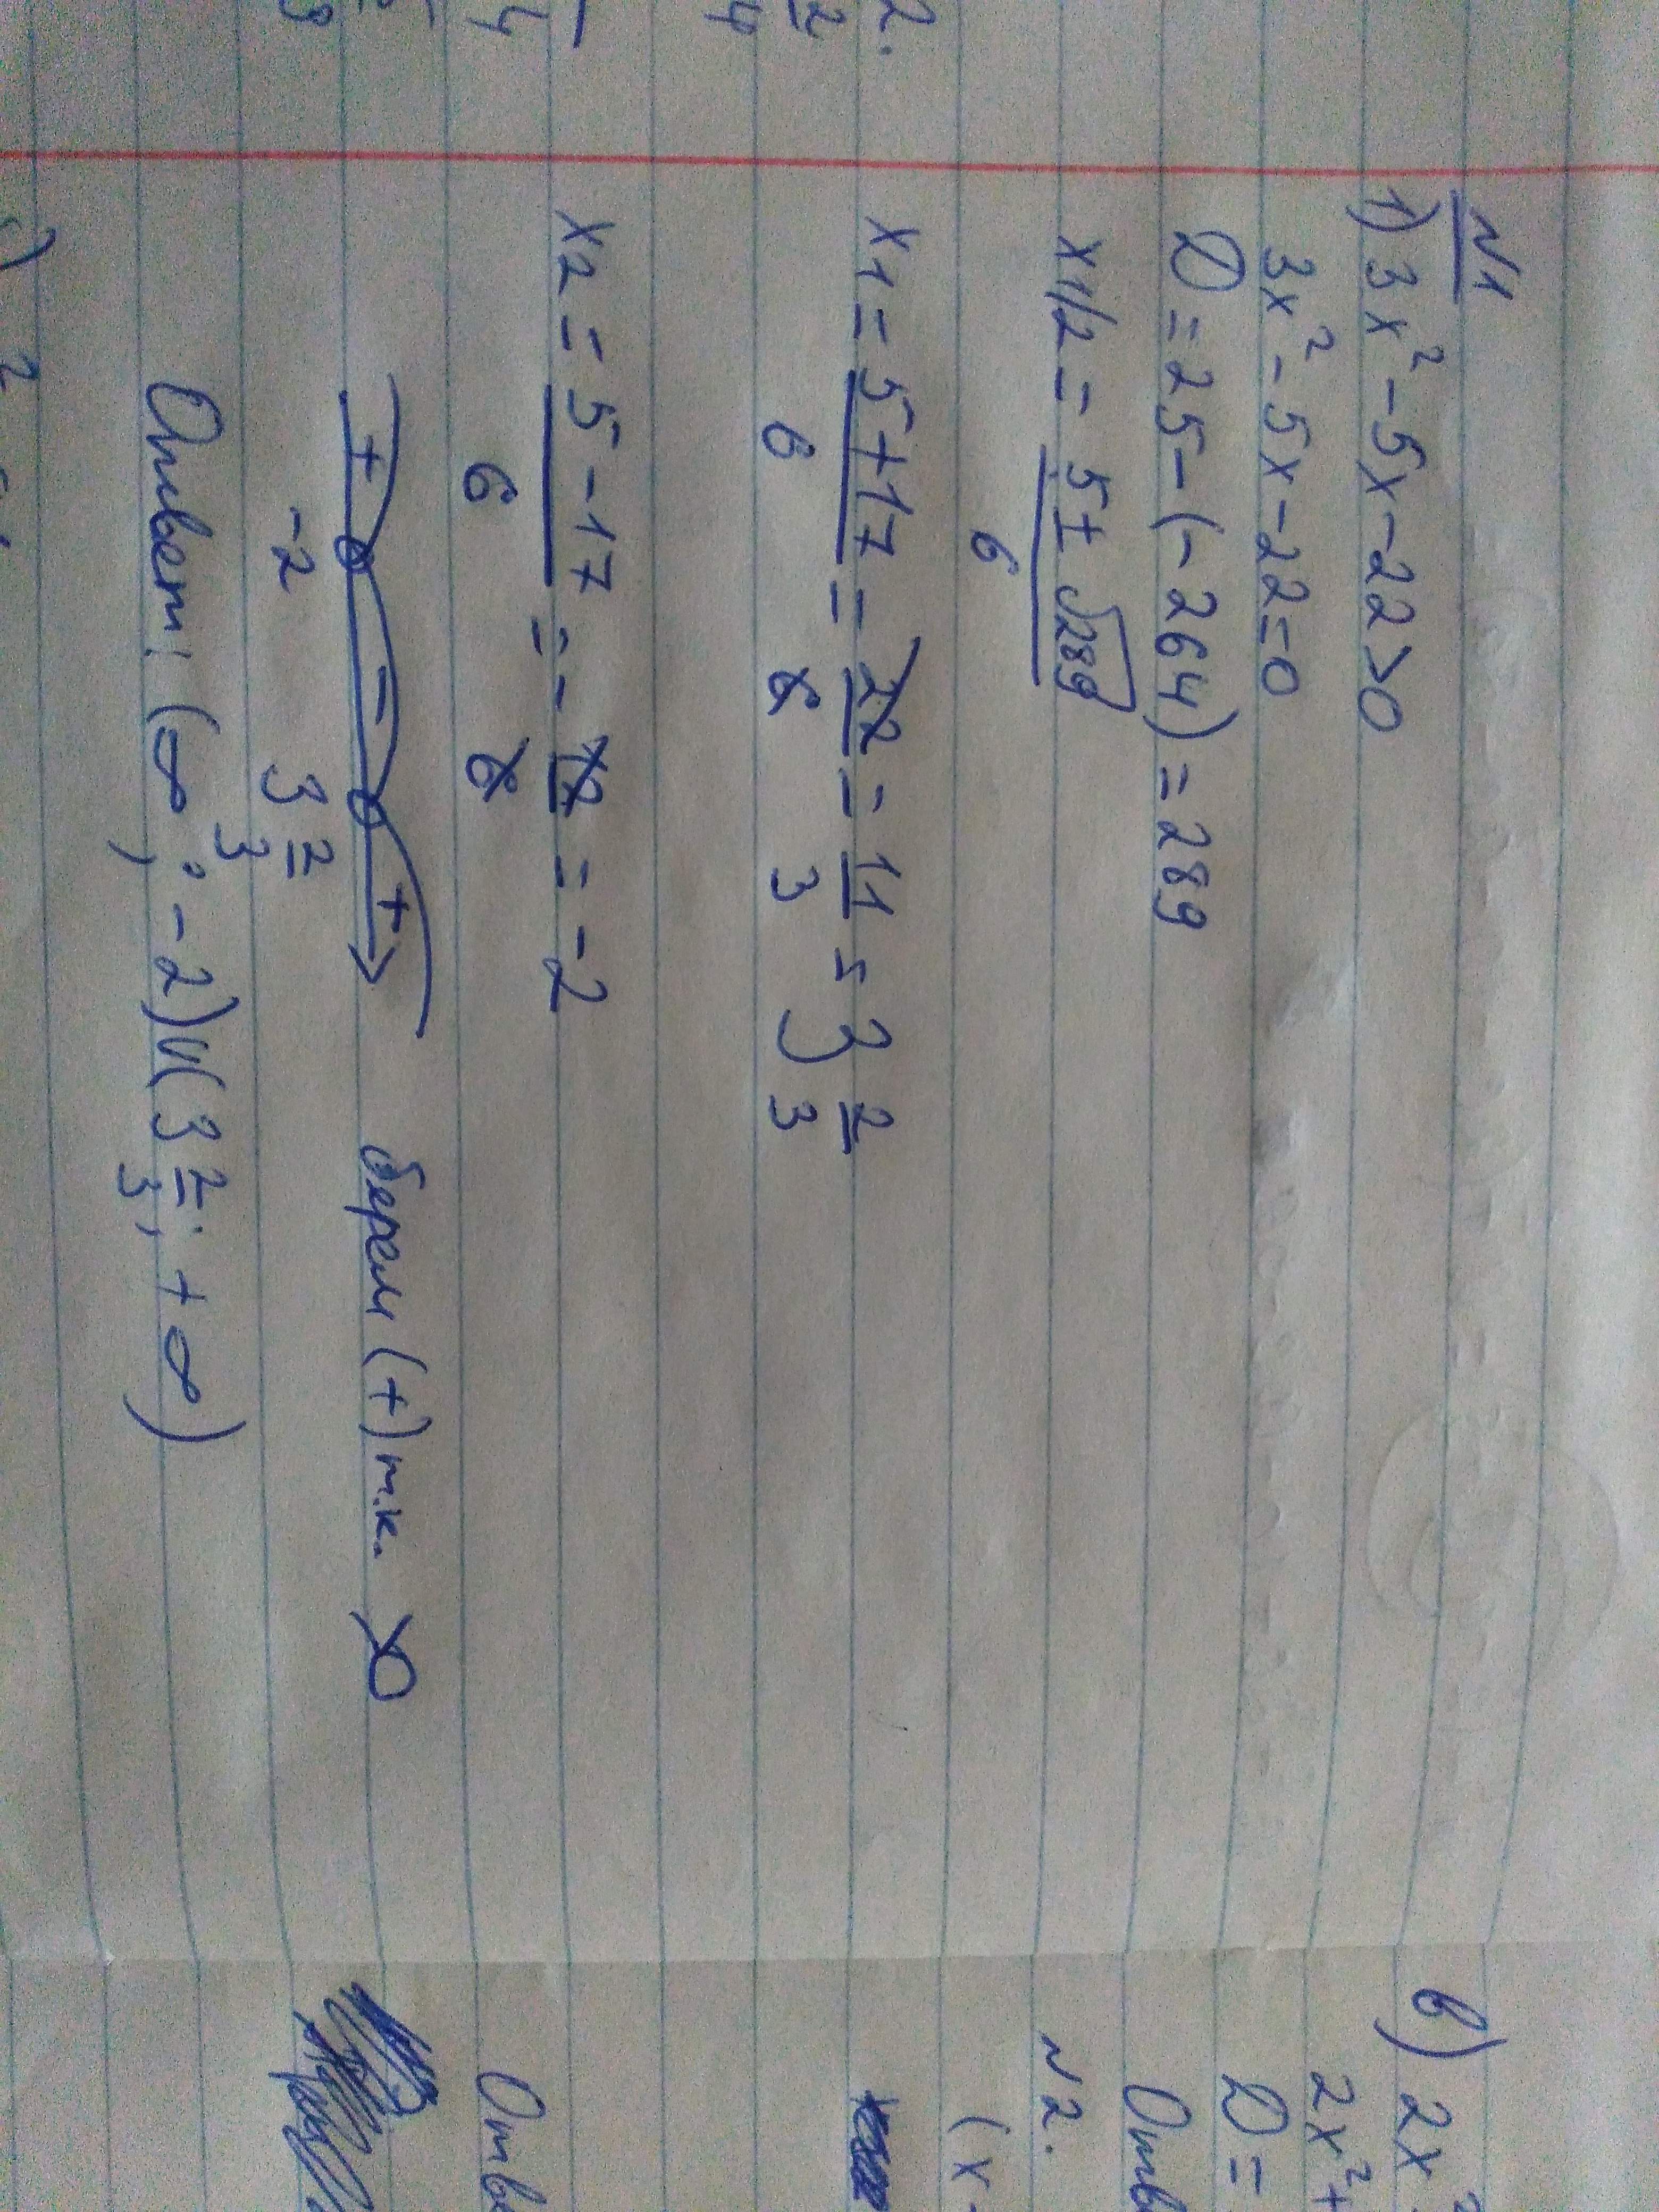 №1
1) 3x² - 5x - 22 > 0
3x² - 5x - 22 = 0
D = 25 - (-264) = 289
x1/2 = (5 ± √289)/6
x1 = (5+17)/6 = 22/6 = 11/3 = 3 2/3
x2 = (5-17)/6 = -12/6 = -2
+ - +
-2 3 2/3
берем (+) т.к. >0
Ответ: (∞; -2)∪(3 2/3; +∞)
в) 2x²
2x² +
D =
Отв
№2.
(x -
Отве